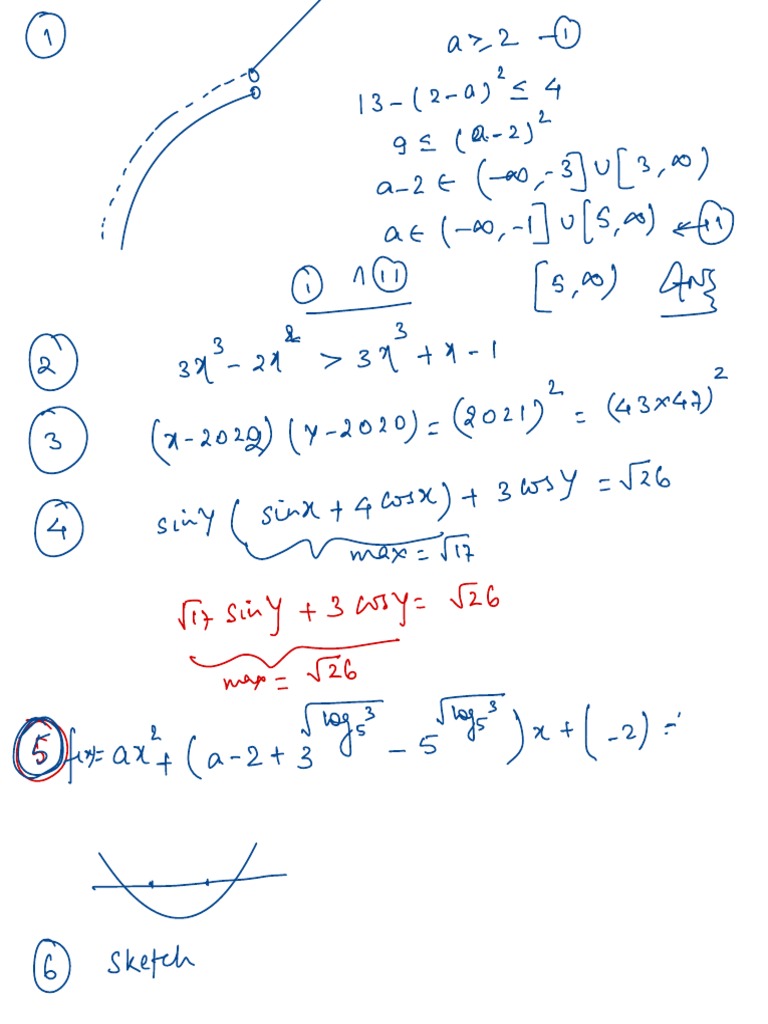 ① a ≥ 2 —①
13-(2-a)² ≤ 4
9 ≤ (a-2)²
a-2 ∈ (-∞,-3] ∪ [3,∞)
a ∈ (-∞,-1] ∪ [5,∞) ←⑪
① ∧ ⑪ [5,∞) Ans
② 3x³ - 2x² > 3x³ + x - 1
③ (x-2022)(y-2020) = (2021)² = (43×47)²
④ siny (sinx + 4cosx) + 3cosy = √26
max = √17
√17 siny + 3cosy = √26
max = √26
⑤ f(x)= ax² + (a-2+3^√log₅3 - 5^√log₅3)x + (-2) =
⑥ sketch